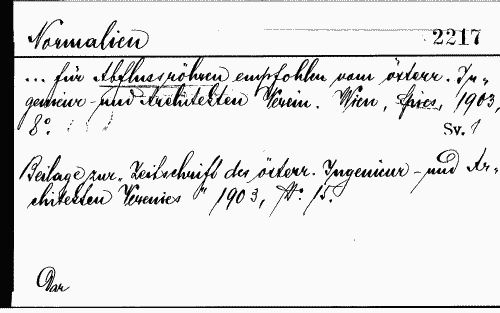 Normalien 2217
... für Abflussröhren empfohlen vom österr. In-
genieur- und Architekten Verein. Wien, Spies, 1903,
8°. Sv. 1
Beilage zur „Zeitschrift des österr. Ingenieur- und Ar-
chitekten Vereines" 1903, No. 15.